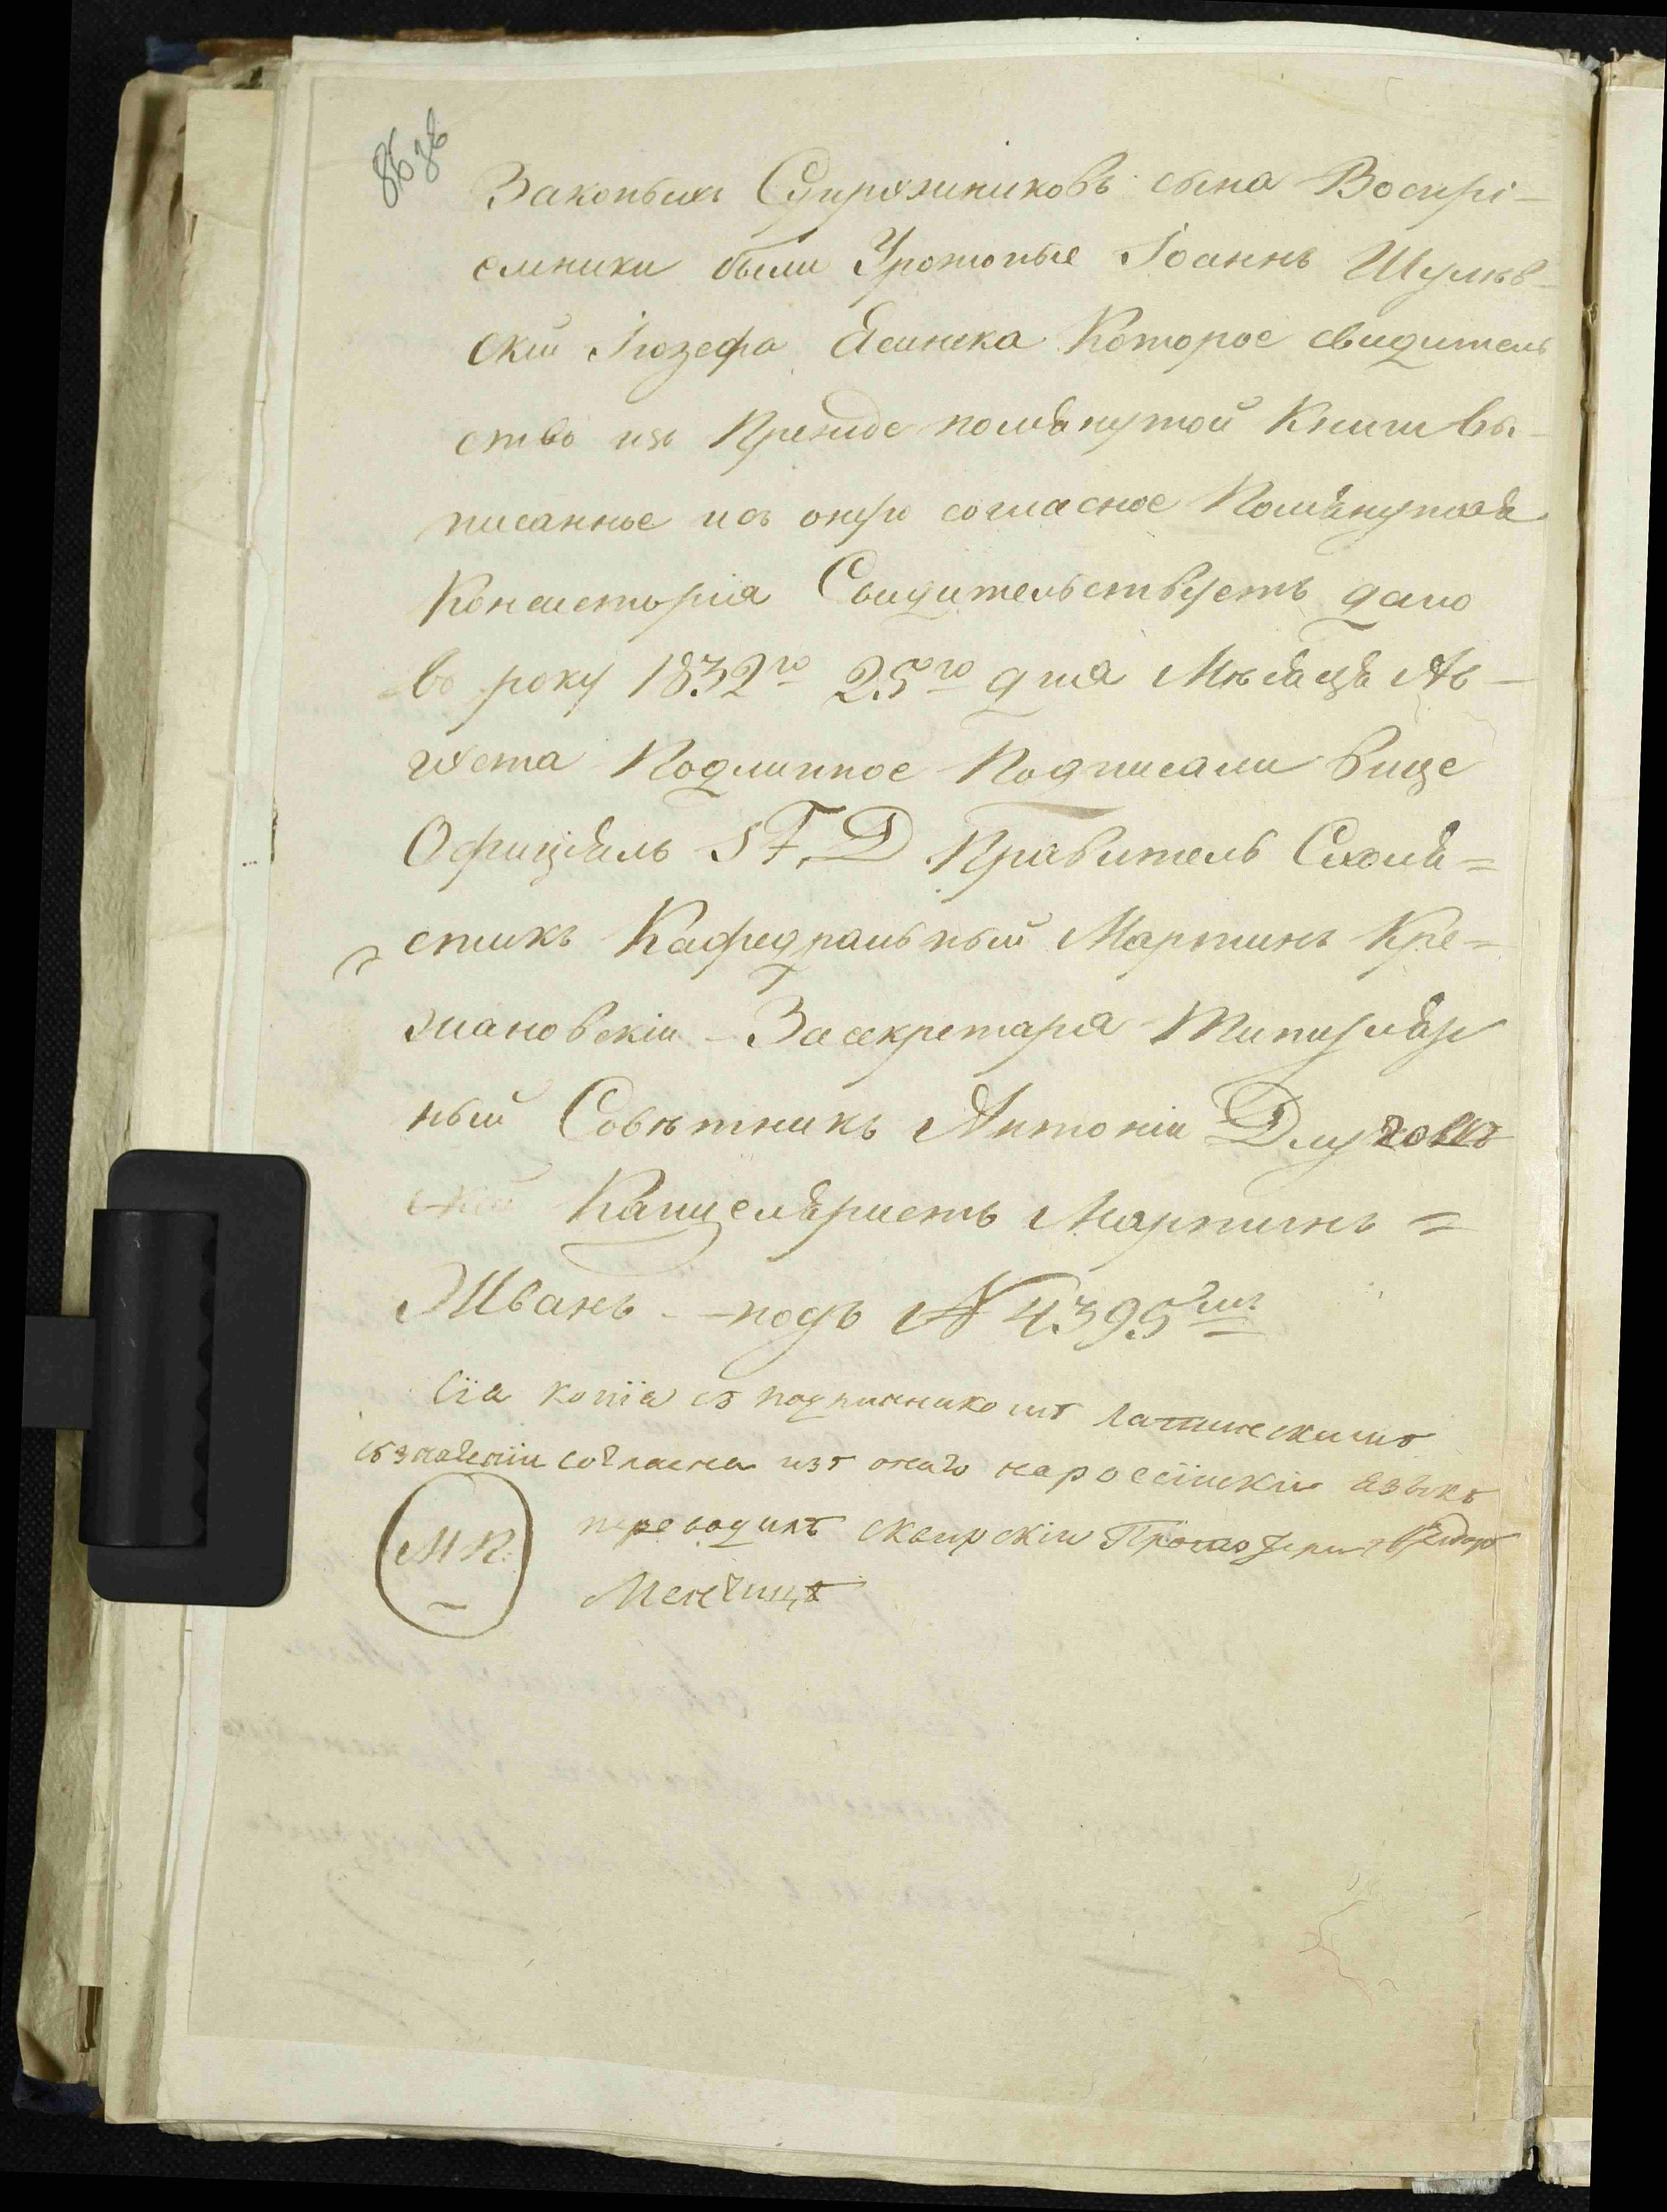 86 зв
Законныхъ Супружниковъ сына Воспрі-
емники были Урожоные Іоаннъ Шулѣв-
скій Іюзефа Ясинска Которое свидитель
ство изъ Прежде помянутой Книги вы-
писанное и съ оною согласное Помянутая
Консисторія Свидительствуетъ дано
во року 1832го 25го дня Мѣсяця Ав-
густа Подлинное Подписали Вице
Офиціяль S F, D Правитель Схоля=
стикъ Кафедральный Мартинъ Кре=
жановскій - За секретаря Титуляр
ный Совѣтникъ Антоній Длуговъ
скій Канцеляристъ Мартинъ =
Жванъ - - подъ № 4395мъ
Сія копія съ подлинникомъ Латинскимъ
въ значеніи согласна изъ онаго на россійскій языкъ
переводилъ сквирскій
М П.